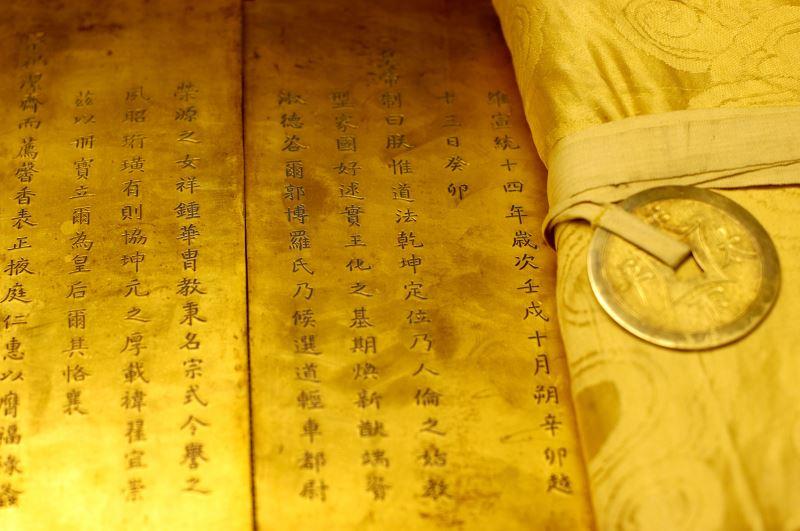 維宣統十四年歲次壬戌十月朔辛卯越
十三日癸卯
皇帝制曰朕惟道法乾坤定位乃人倫之始教
型家國好逑實王化之基期煥新猷端資
淑德咨爾郭博羅氏乃候選道輕車都尉
榮源之女祥鍾華胄教秉名宗式令譽之
夙昭珩璜有則協坤元之厚載褘翟宜崇
茲以冊寶立爾為皇后爾其恪襄
潔齊而薦馨香表正掖庭仁惠以膺福祿螽